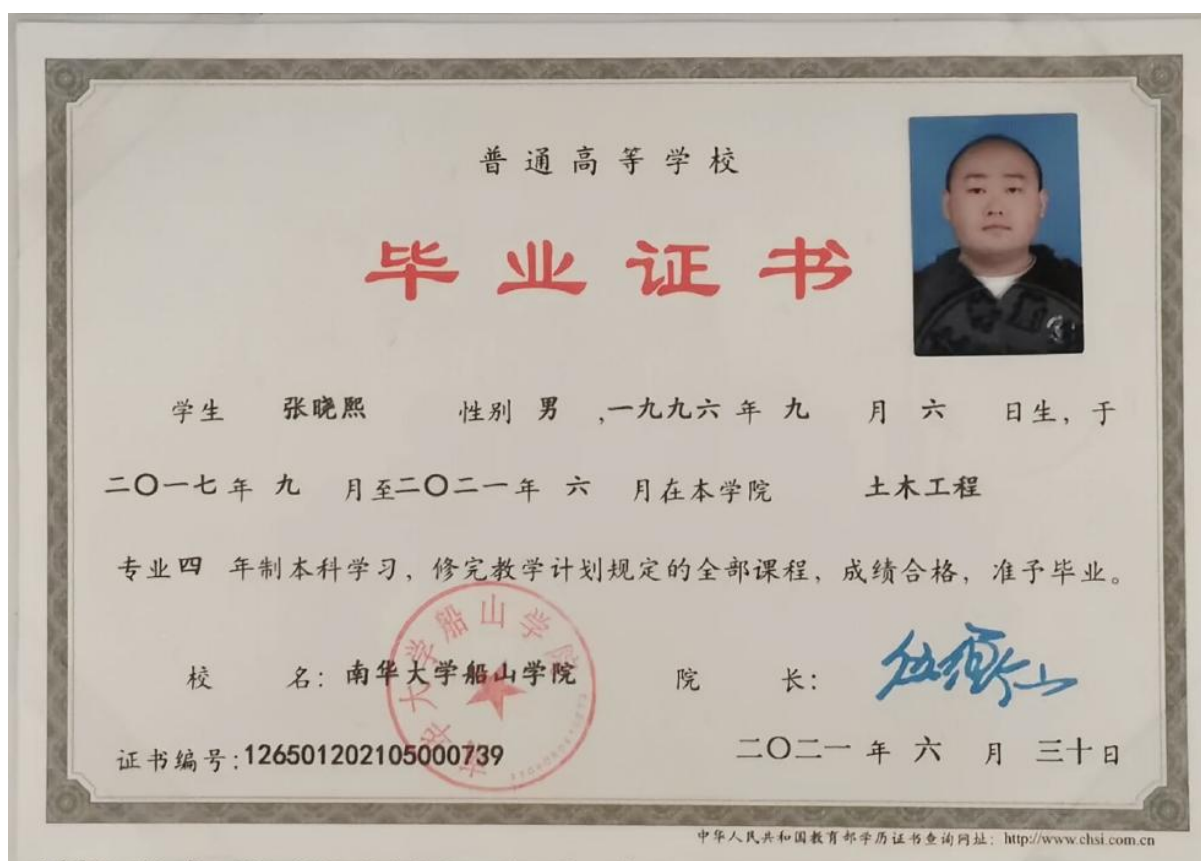 普通高等学校
毕业证书
学生 张晓熙 性别 男 ,一九九六 年 九 月 六 日生, 于
二〇一七 年 九 月至二〇二一 年 六 月在本学院 土木工程
专业四 年制本科学习, 修完教学计划规定的全部课程, 成绩合格, 准予毕业。
校 名: 南华大学船山学院 院 长:
南华大学船山学院
证书编号:126501202105000739 二〇二一 年 六 月 三十 日
中华人民共和国教育部学历证书查询网址: http://www.chsi.com.cn